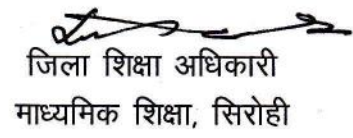 जिला शिक्षा अधिकारी
माध्यमिक शिक्षा, सिरोही